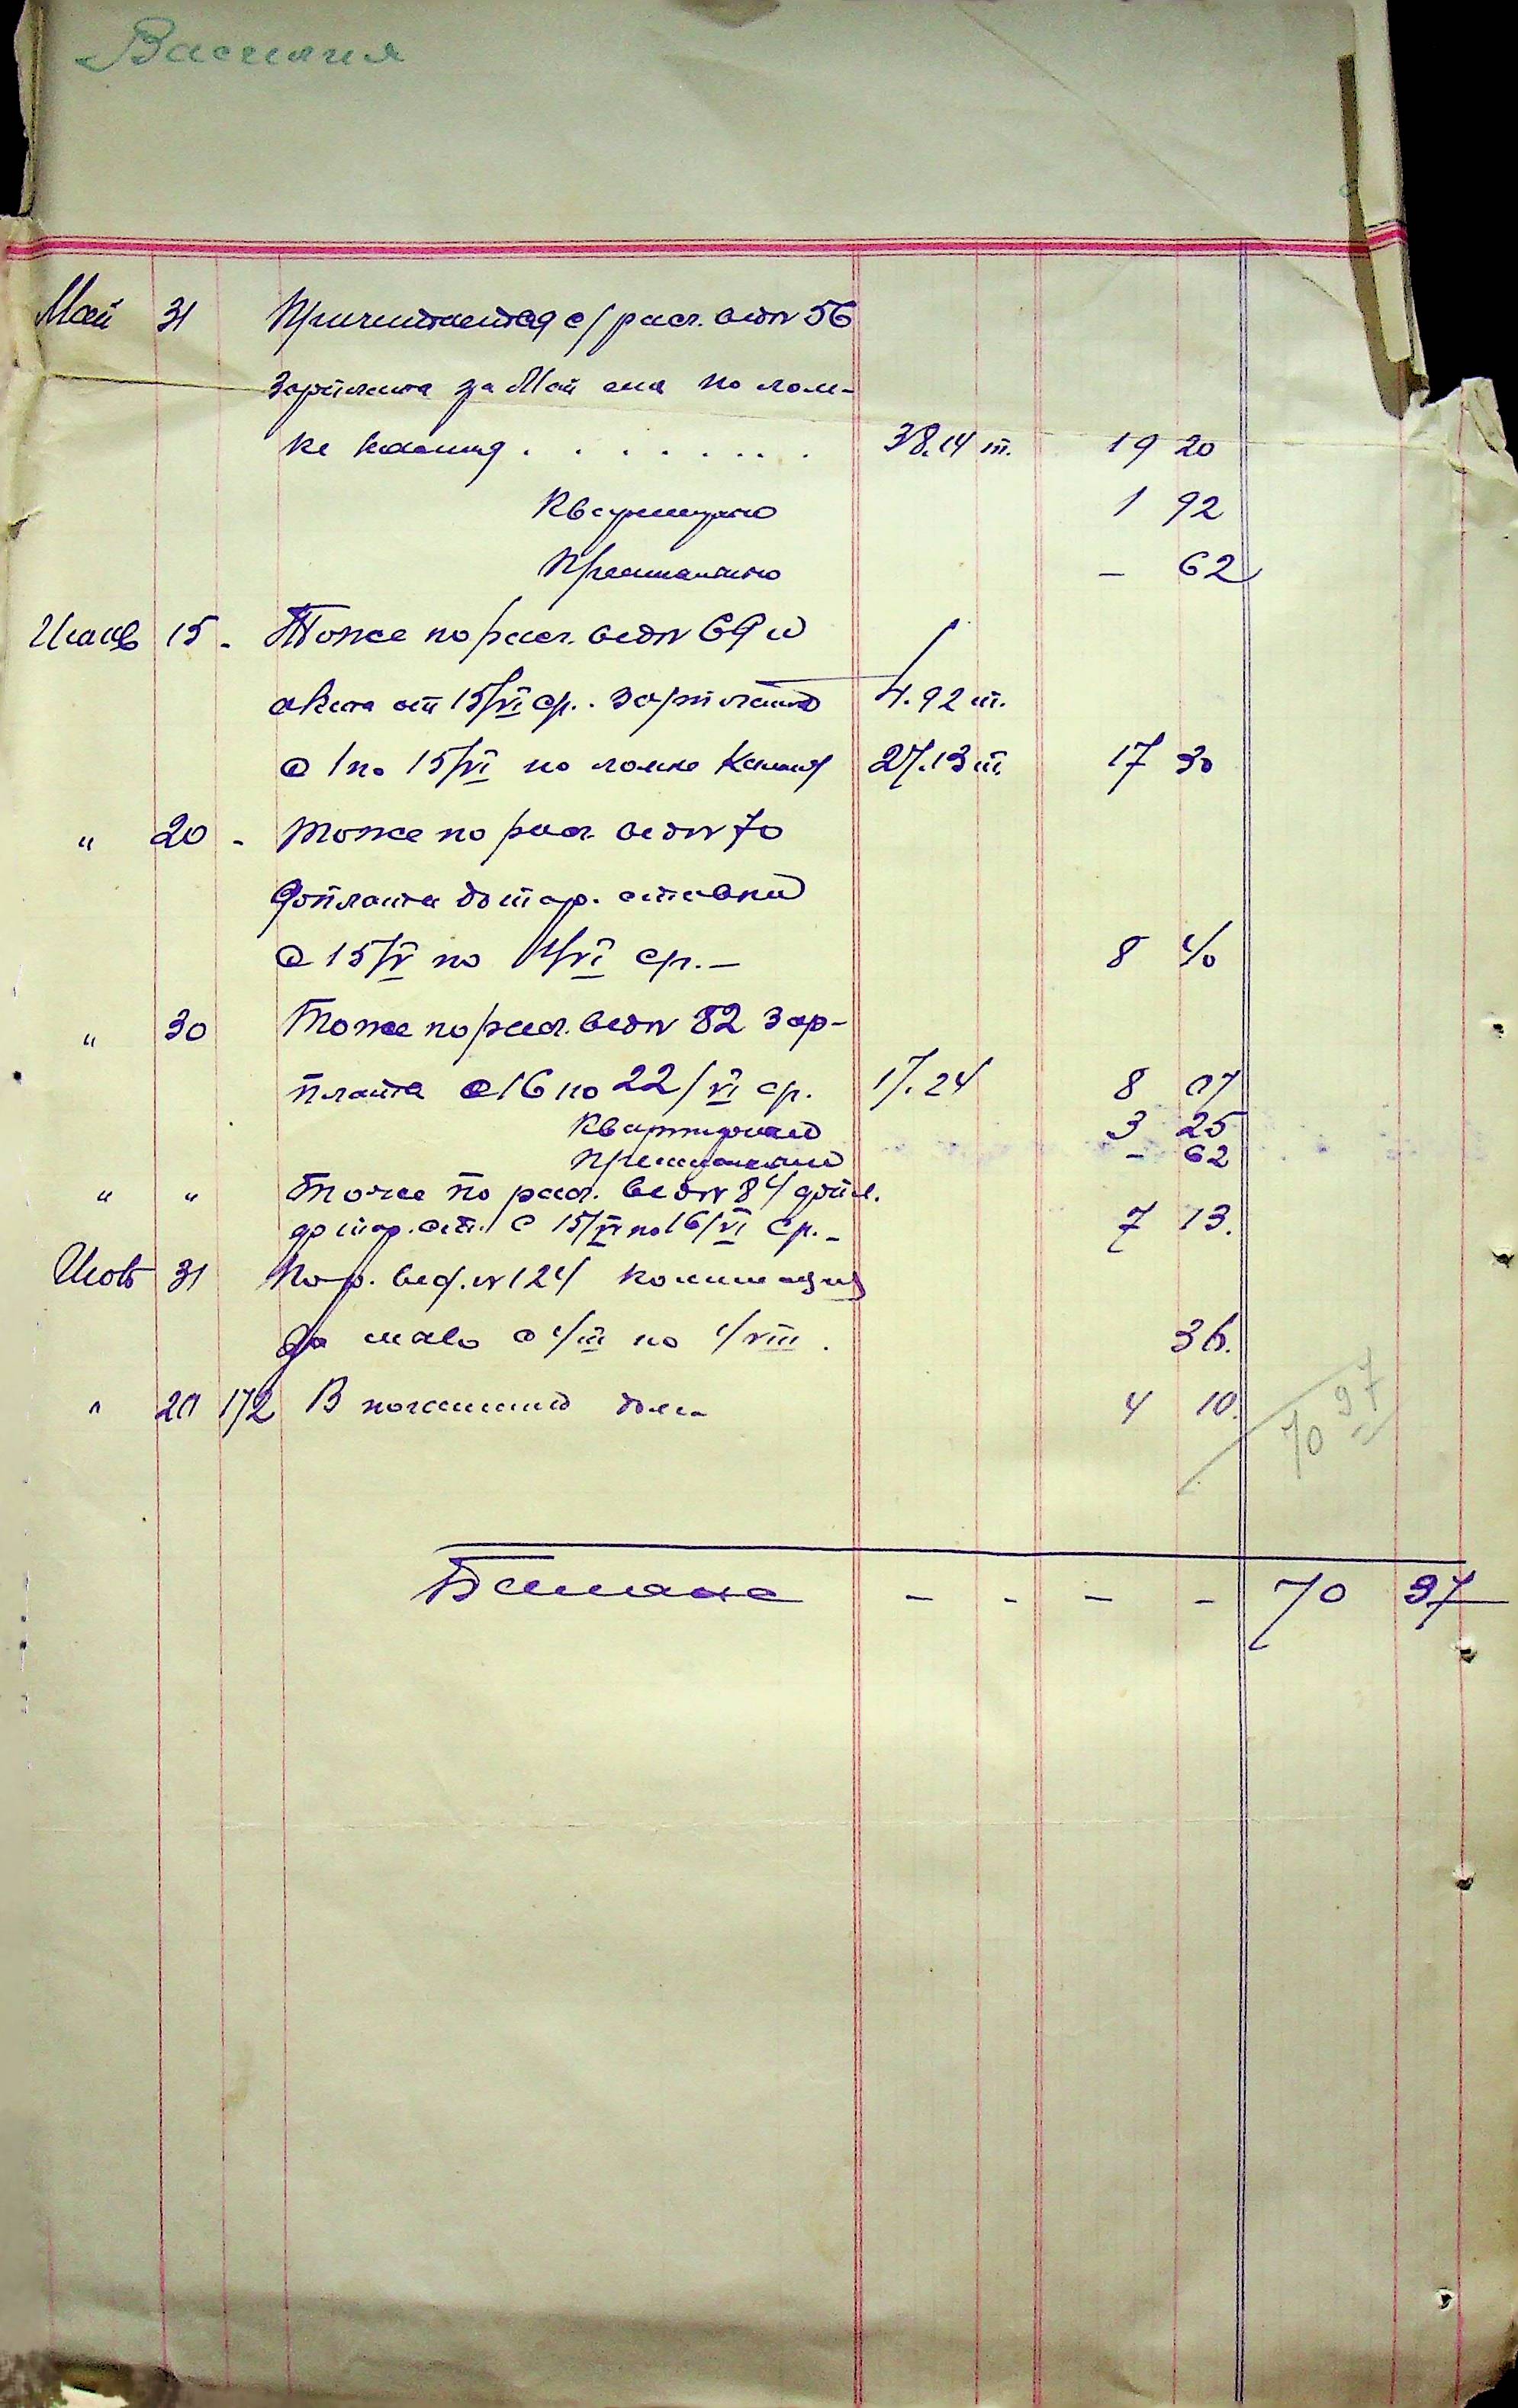 Василия
Май 31 Причитается с/ расч. вед № 56
Зарплата за Май м-ц по лом-
ке камня . . . . . . . . 38.14 т. 19 20
Квартирные 1 92
– 62
Июнь 15 - Тоже по расч. вед № 69 и
акта от 15/VI ср. зарплата 4.92 т.
с 1 по 15/VI по ломке камня 27.13 т. 17 30
" 20 - Тоже по расч. вед № 70
Доплата до тар. ставки
с 15/V по 1/VI ср. – 8 40
" 30 Тоже по расч. вед № 82 зар-
плата с 16 по 22/VI ср. 17.24 8 07
Квартирные 3 25
– 62
" " Тоже по расч. вед № 84 допл.
до тар. ст. с 15/VI по 16/VI ср. – 7 13.
31 По р. вед. № 124
За с 1/III по 1/VIII . 36.
" 20 172 В погашение долга 4 10.
70 97
Баланс - - - - 70 97